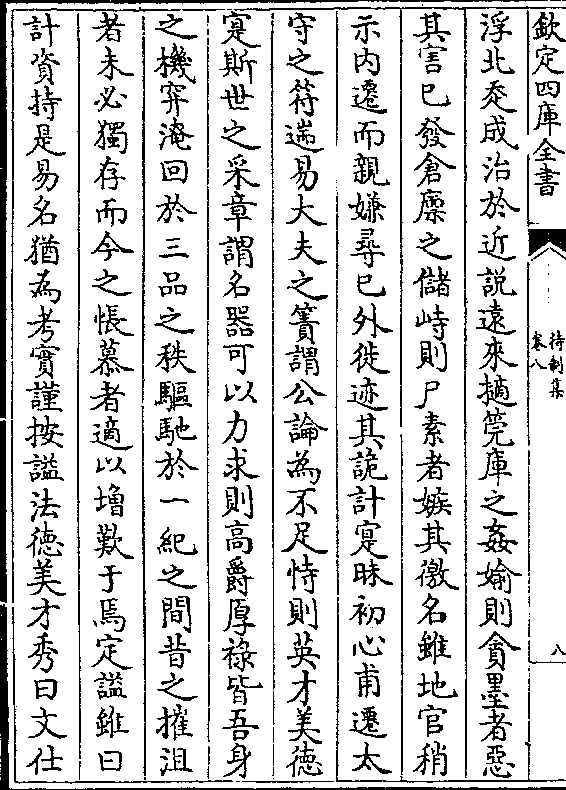 欽定四庫全書
待制集
卷八
八
浮北忝成治於近説遠來擿筦庫之姦媮則貪墨者惡
其害已發倉廪之儲峙則尸素者嫉其徼名雖地官稍
示内遷而親嫌尋已外徙迹其詭計寔昧初心甫遷太
守之符遄易大夫之簀謂公論為不足恃則英才美徳
寔斯世之采章謂名器可以力求則高爵厚禄皆吾身
之機穽淹回於三品之秩驅馳於一紀之間昔之摧沮
者未必獨存而今之悵慕者適以增歎于焉定謚雖曰
計資持是易名猶為考實謹按謚法徳美才秀曰文仕